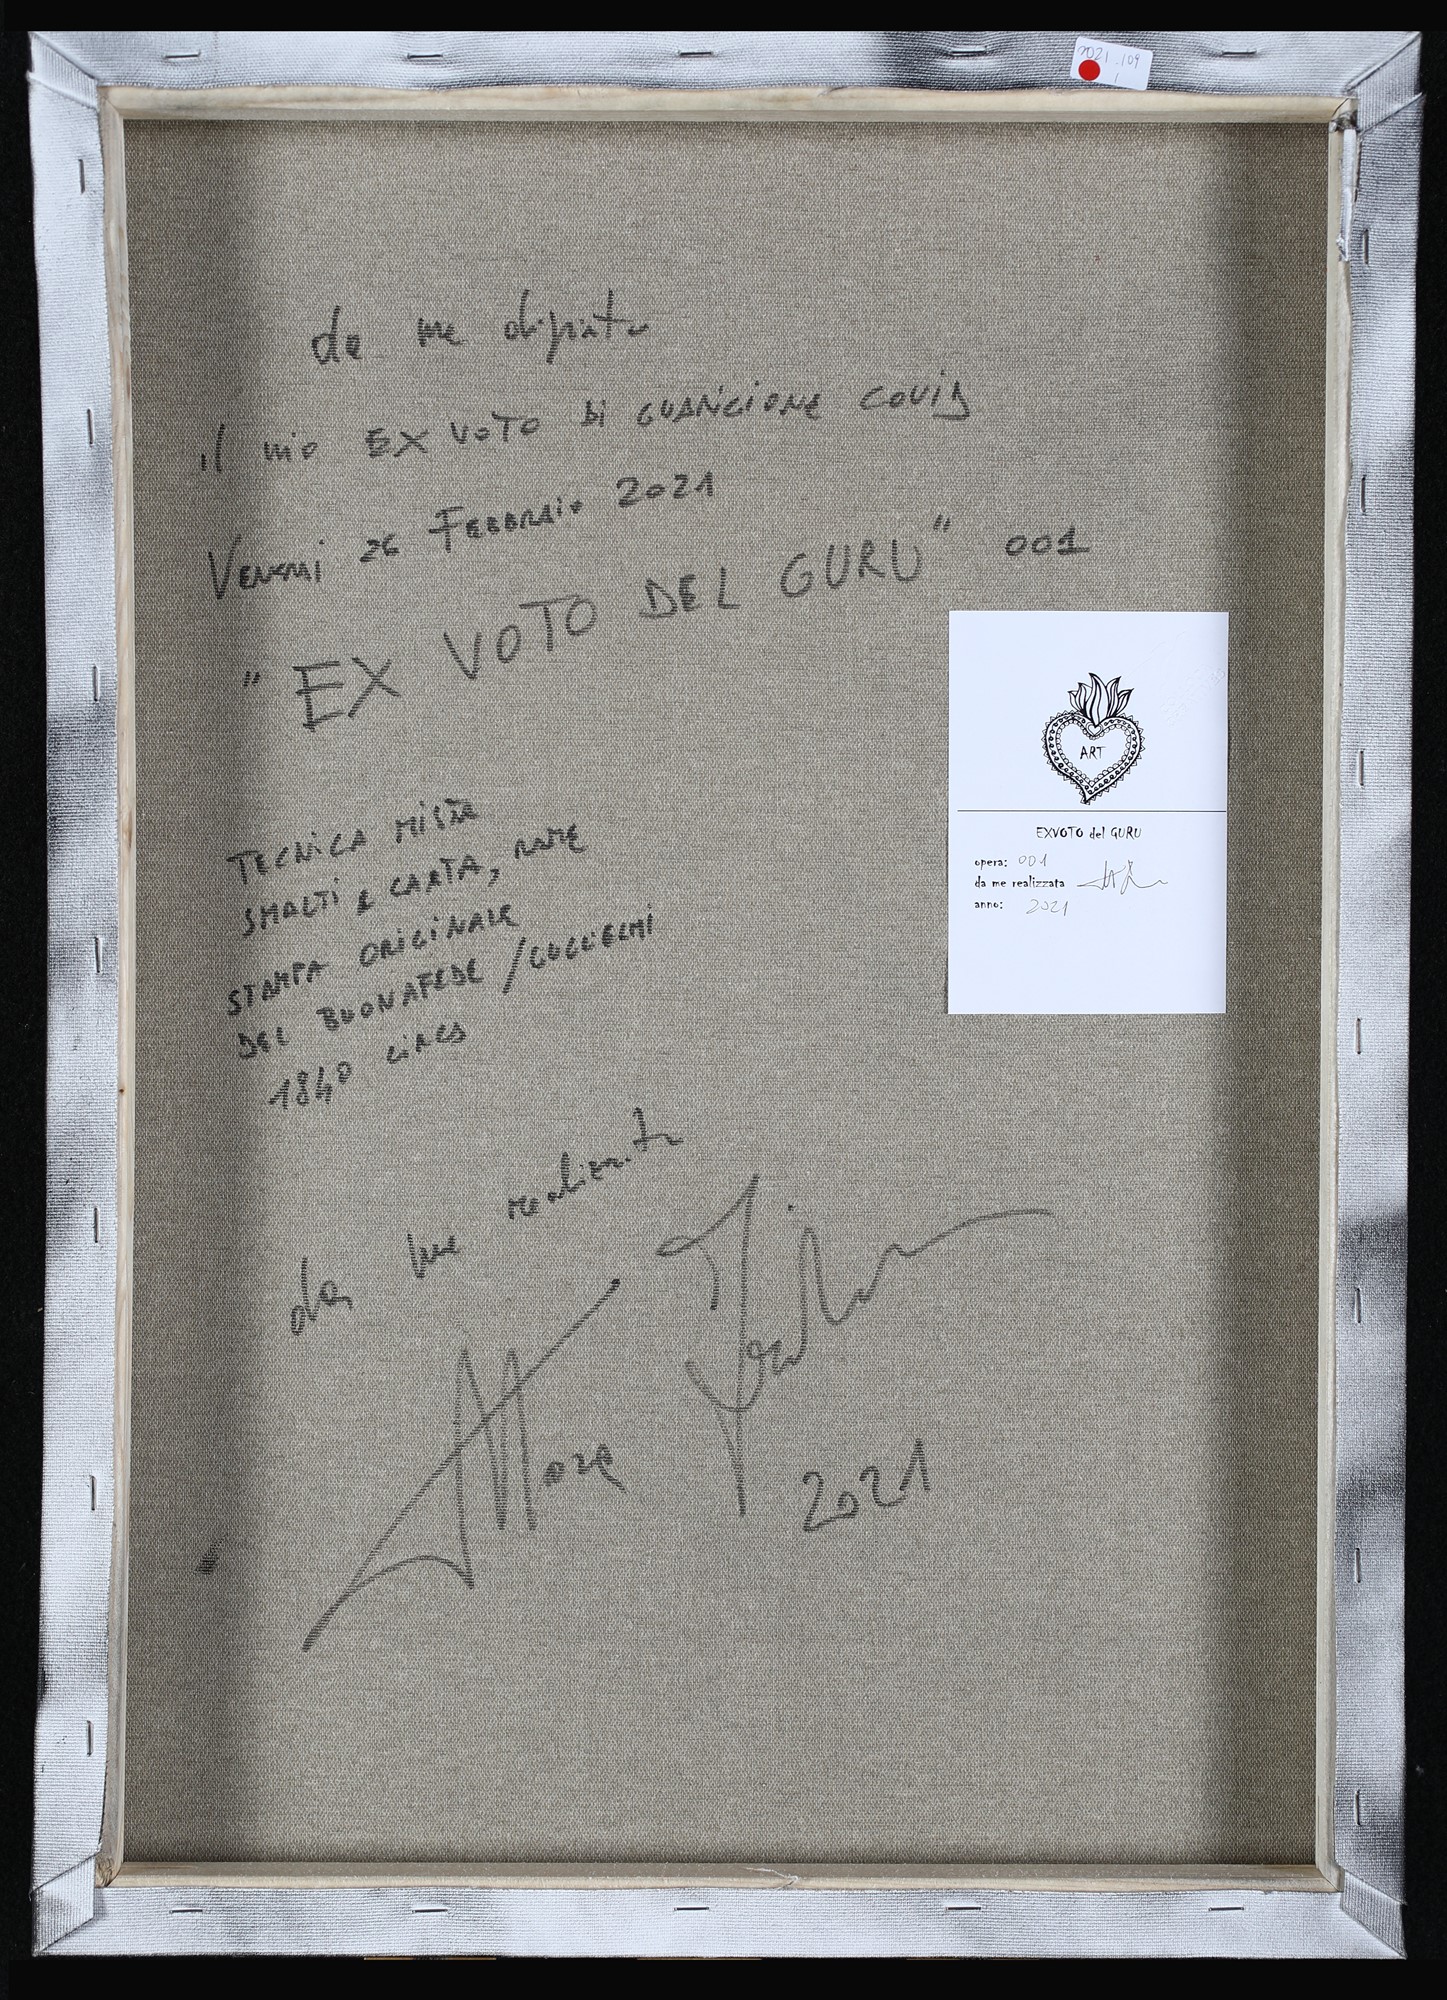 2021.109
1
da me dipinto
il mio EX VOTO DI GUARIGIONE COVID
Venerdi 26 FEBBRAIO 2021
"EX VOTO DEL GURU" 001
TECNICA MISTA
SMALTI e CARTA, RAME
STAMPA ORIGINALE
DEL BUONAFEDE / GUGLIELMI
1840 CIRCA
da me realizzato
2021
ART
EXVOTO del GURU
opera: 001
da me realizzata
anno: 2021